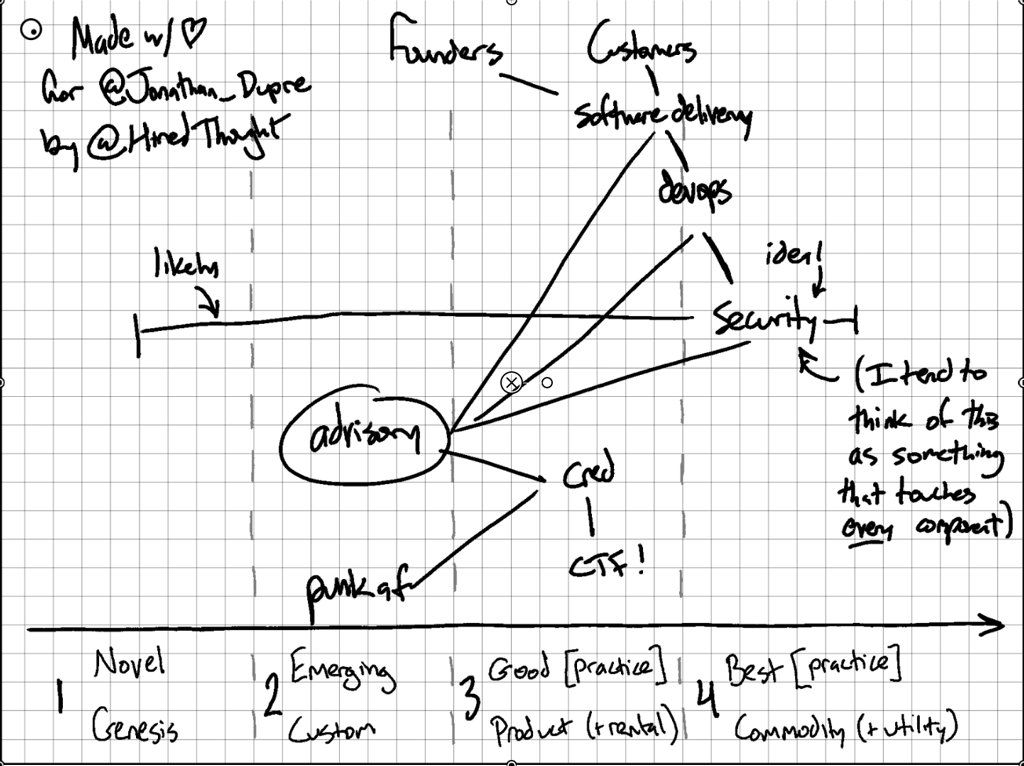 Made w/ ♡
for @Jonathan_Dupre
by @HiredThought
Founders
Customers
Software delivery
devops
likely
ideal
Security
(I tend to
think of this
as something
that touches
every component)
advisory
cred
CTF!
punk af
1 Novel
Genesis
2 Emerging
Custom
3 Good [practice]
Product (+rental)
4 Best [practice]
Commodity (+utility)